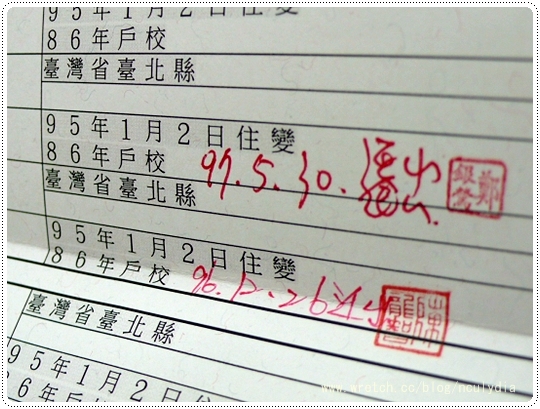 95年1月2日住變
86年戶校
臺灣省臺北縣
95年1月2日住變
86年戶校
97.5.30.遷出
鄭銀瑩
臺灣省臺北縣
95年1月2日住變
86年戶校
96.12.26遷出
臺灣省臺北縣
95年1月2日住變
86年戶校
www.wretch.cc/blog/noulydia